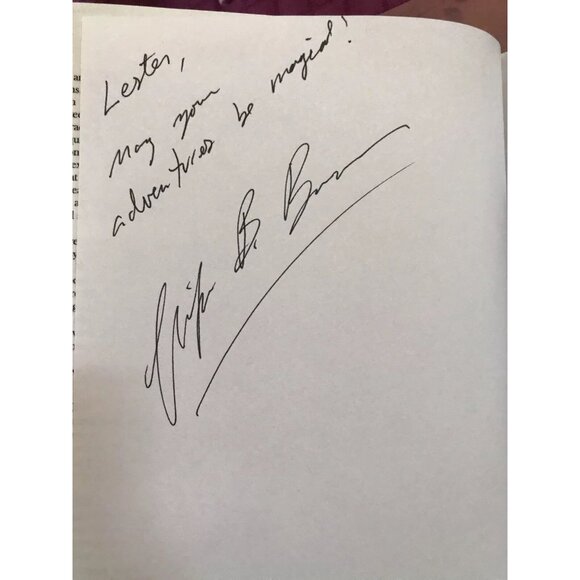 Lester,
May your
adventures be magical!
B.